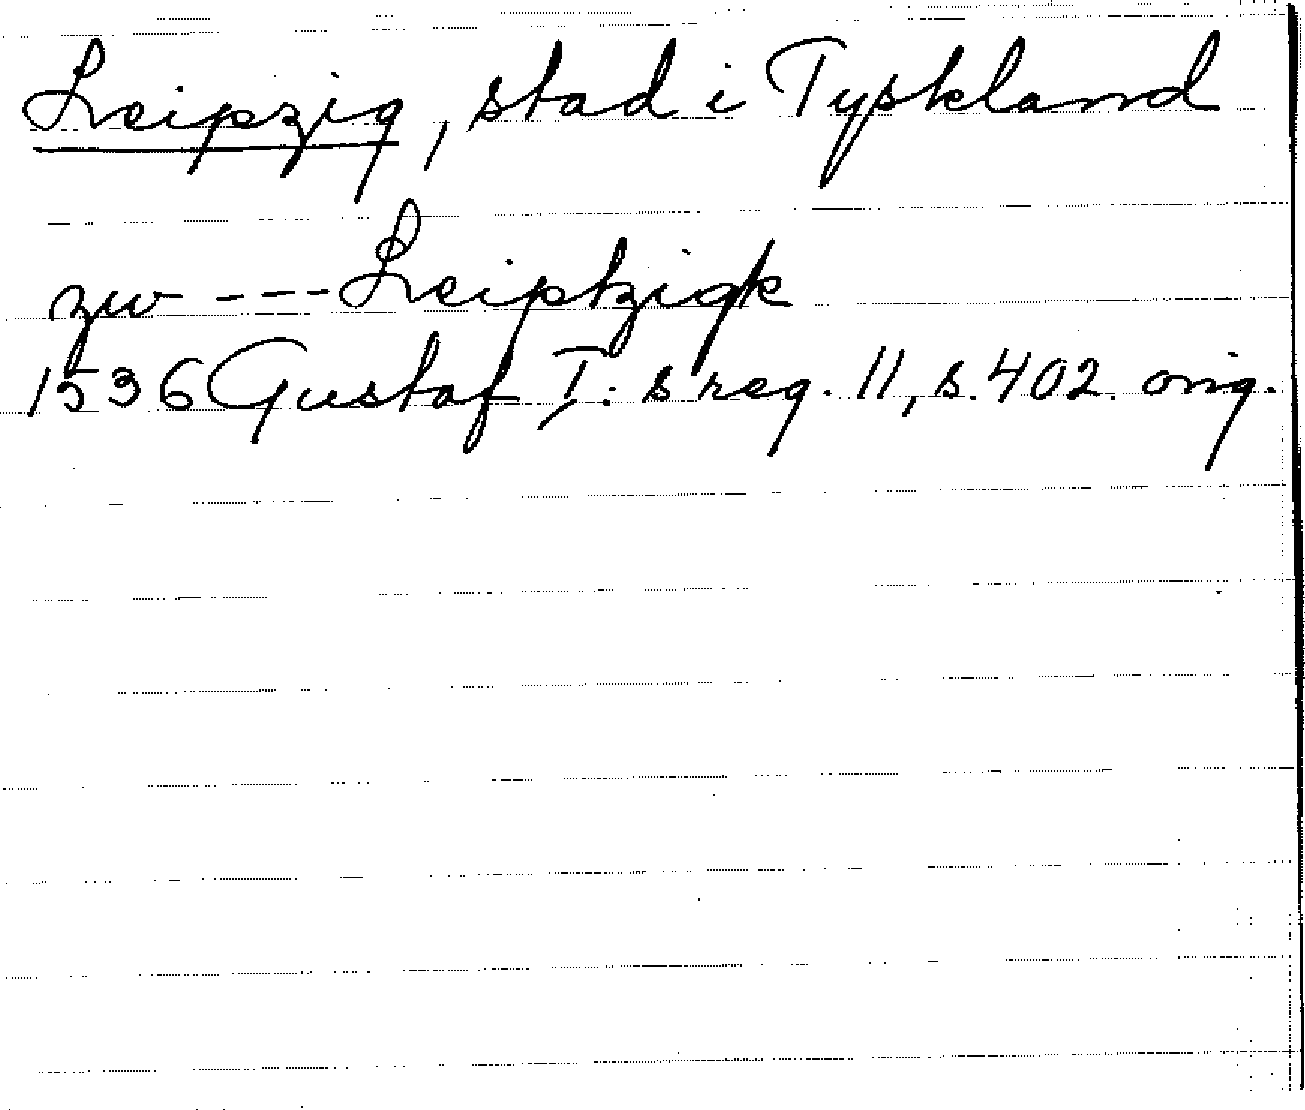 Leipzig, stad i Tyskland
zw --- Leiptzigk
1536 Gustaf I:s reg. 11, s. 402. orig.